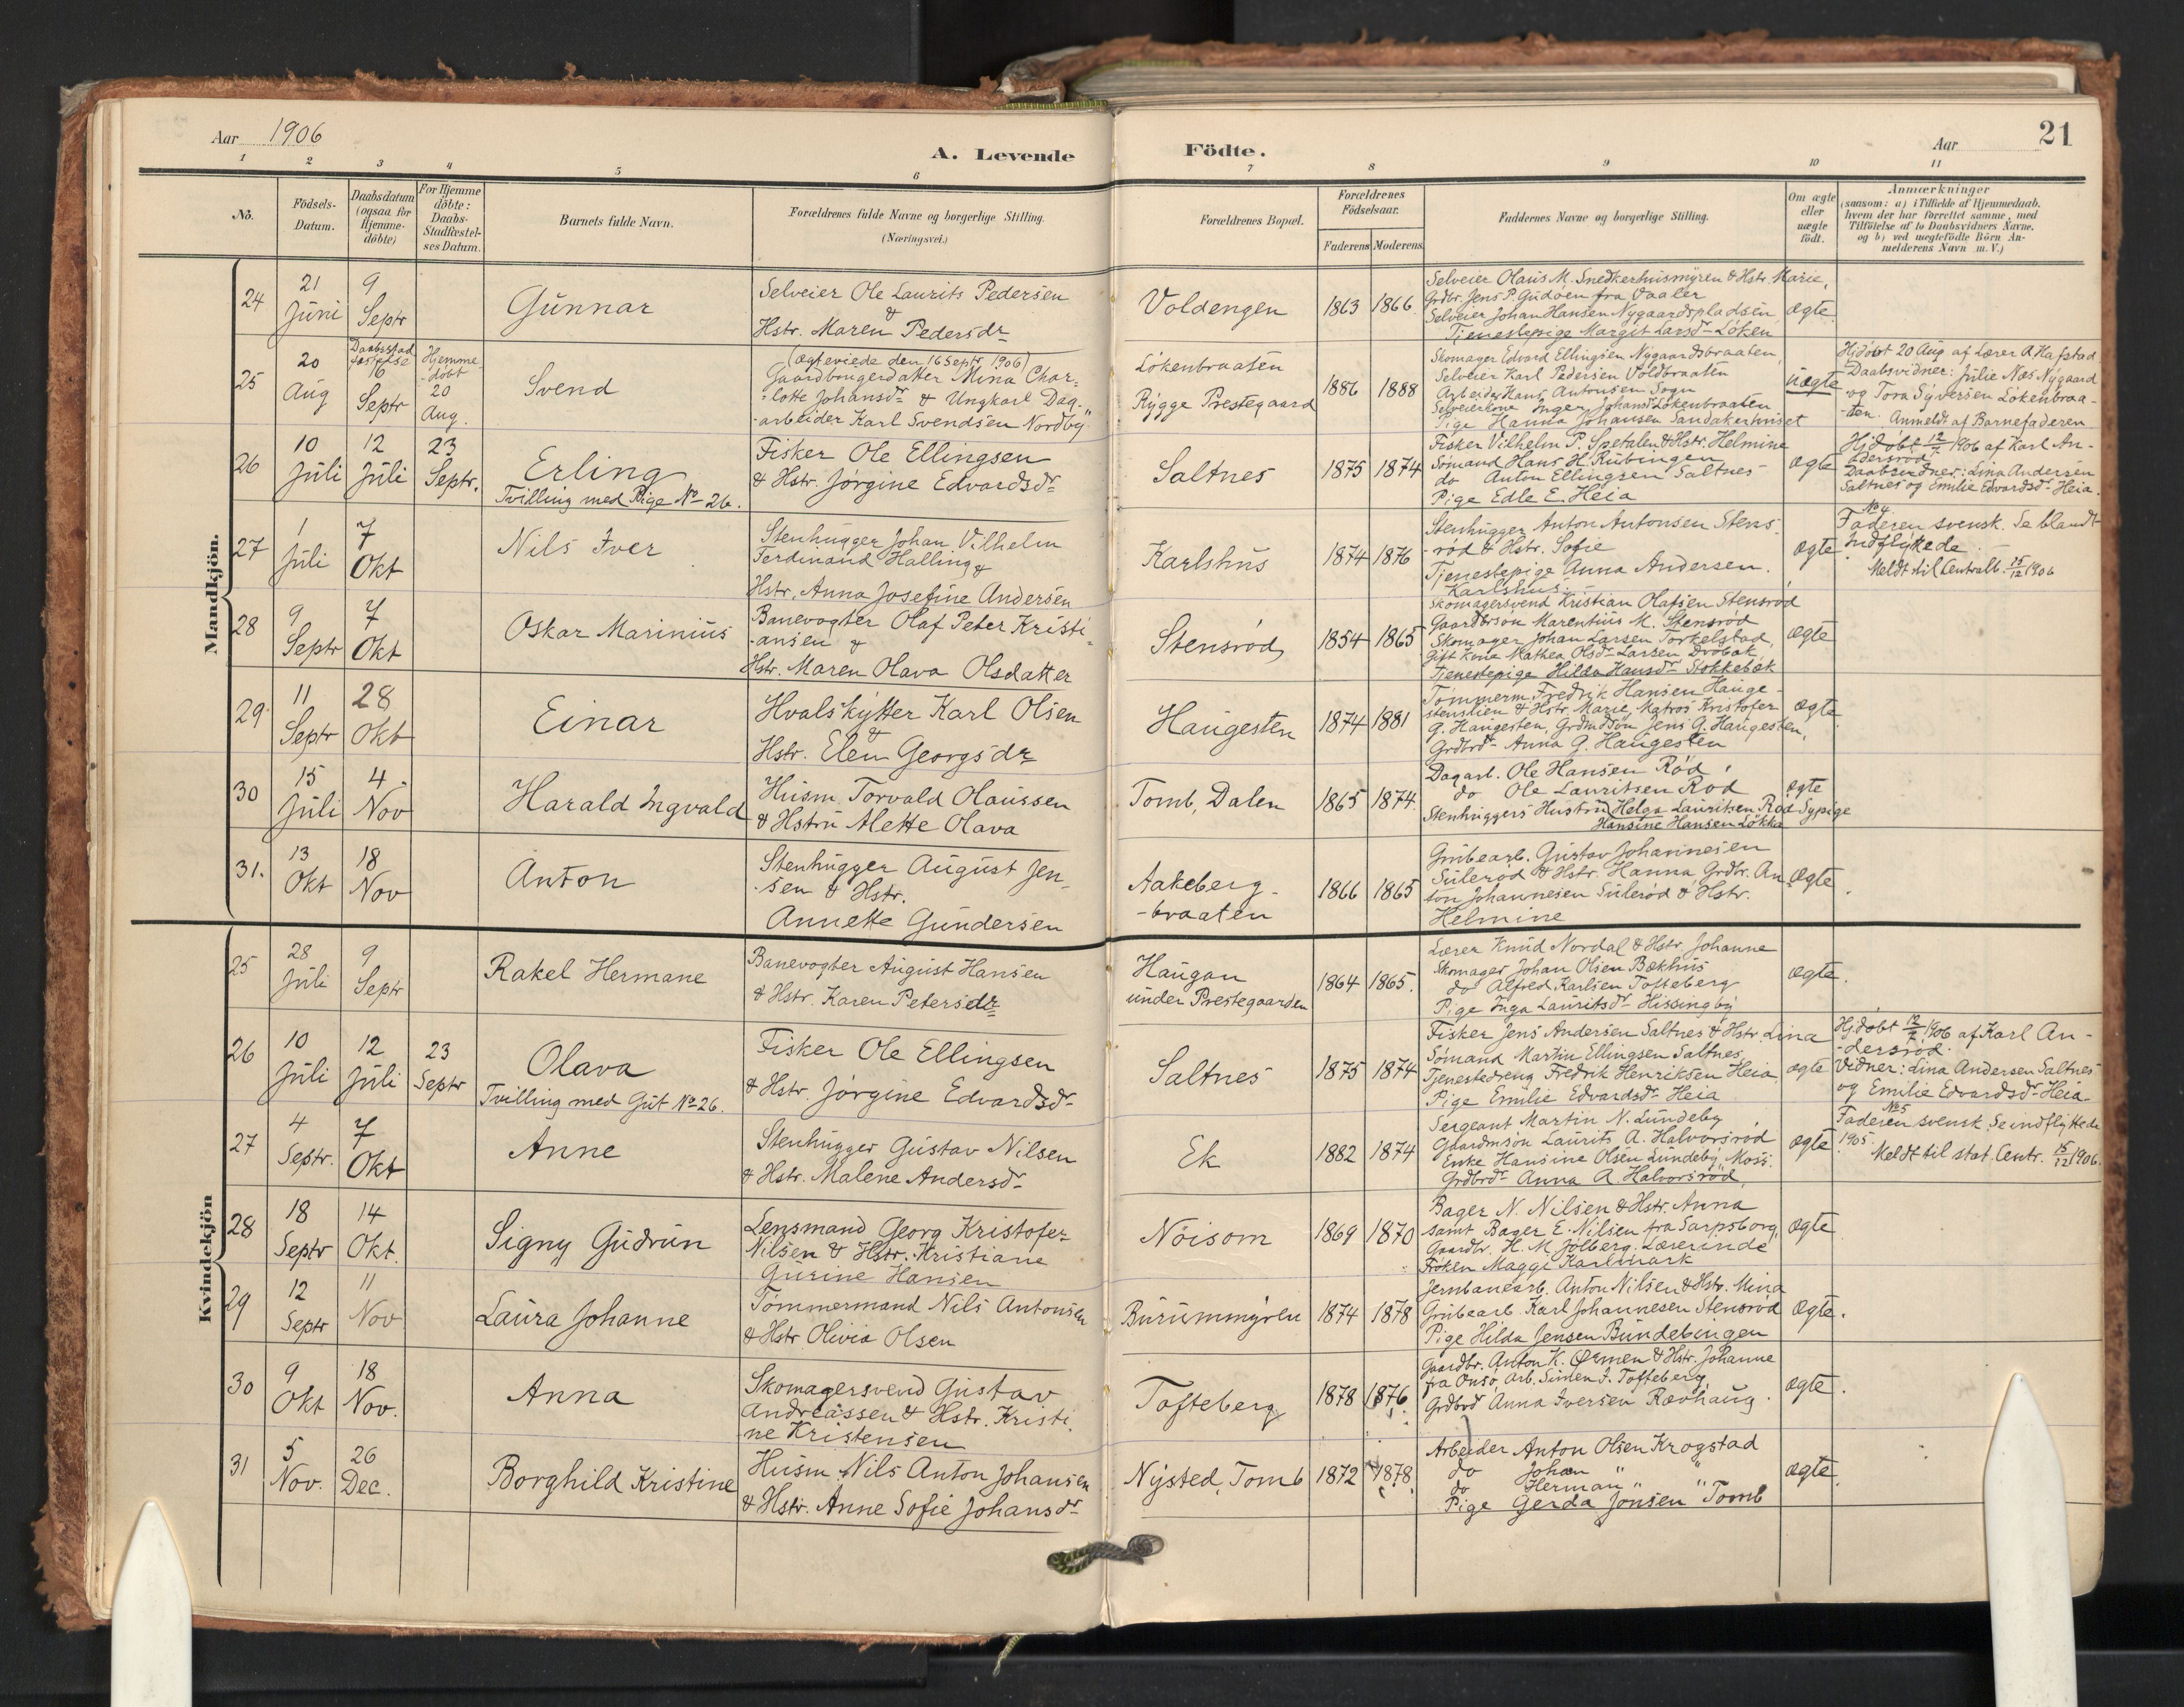 Aar 1906
A. Levende Födte.
Aar
21
1 2 3 4 5 6 7 8 9 10 11
No.
Födsels-Datum.
Daabsdatum (ogsaa for Hjemme-döbte)
For Hjemme döbte: Daabs-Stadfæstel-ses Datum.
Barnets fulde Navn.
Forældrenes fulde Navne og borgerlige Stilling. (Næringsvei.)
Forældrenes Bopæl.
Forældrenes Födselsaar.
Faderens Moderens
Faddernes Navne og borgerlige Stilling.
Om ægte eller uægte født.
Anmærkninger
(saasom: a) i Tilfælde af Hjemmedaab, hvem der har forrettet samme, med Tilföielse af to Daabsvidners Navne, og b) ved uægtefödte Börn An-melderens Navn m. V.)
Mandkjön.
24
21 Juni
9 Septr
Gunnar
Selveier Ole Laurits Pedersen
&
Hstr. Maren Pedersdr
Voldengen
1863 1866
Selveier Olaus M. Snedkerhusmyren & Hstr. Marie,
Grdbr. Jens P. Gudoen fra Vaaler
Selveier Johan Hansen Nygaardspladsen
Tjenestepige Margit Larsdr Løken
ægte
25
20 Aug
Daabsstadfæstelse
6 Septr
Hjemmedøbt
20 Aug.
Svend
(Ægteviede den 16 Septr 1906)
Gaardbrugerdatter Mina Char-
lotte Johansdr & Ungkarl Dag-
arbeider Karl Svendsen Nordby
Løkenbraaten
Rygge Prestegaard
1886 1888
Skomager Edvard Ellingsen Nygaardsbraaten,
Selveier Karl Pedersen Voldbraaten
Arbeider Hans Antonsen Sogn
Selveierkone Inger Johansdr Løkenbraaten
Pige Hanna Johansen Sandakerhuset
uægte
Hjdøbt 20 Aug af Lærer A Hafstad
Daabsvidner: Julie Næs Nygaard
og Tora Syversen Løkenbraa-
ten. Anmeldt af Barnefaderen
26
10 Juli
12 Juli
23 Septr.
Erling
Tvilling med Pige No 26.
Fisker Ole Ellingsen
& Hstr. Jørgine Edvardsdr
Saltnes
1875 1874
Fisker Vilhelm P. Spetalen & Hstr. Helmine
Sømand Hans H. Rubingen
do Anton Ellingsen Saltnes
Pige Edle E. Heia
ægte
Hjdøbt 12/7 1906 af Karl An-
dersrød
Daabsvidner: Lina Andersen
Saltnes og Emilie Edvardsdr Heia.
27
1 Juli
7 Okt
Nils Iver
Stenhugger Johan Vilhelm
Ferdinand Halling &
Hstr. Anna Josefine Andersen
Karlshus
1874 1876
Stenhugger Anton Antonsen Stens-
rød & Hstr. Sofie
Tjenestepige Anna Andersen.
Karlshus
ægte
No 4
Faderen svensk. Se blandt
Indflyttede.
Meldt til Centralb. 15/12 1906
28
9 Septr
7 Okt
Oskar Marinius
Banevogter Olaf Peter Kristi-
ansen &
Hstr. Maren Olava Olsdatter
Stensrød
1854 1865
Skomagersvend Kristian Olafsen Stensrød
Gaardbrsøn Marentius M. Stensrød
Skomager Johan Larsen Torkelstad,
Gift Kone Mathea Olsdr Larsen Drøbak
Tjenestepige Hilda Hansdr Stokkebæk
ægte
29
11 Septr
28 Okt
Einar
Hvalskytter Karl Olsen
&
Hstr. Elen Georgsdr
Haugesten
1874 1881
Tømmerm. Fredrik Hansen Hauge-
stenstien & Hstr. Marie, Matros Kristofer
G. Haugesten, Grdmdsøn Jens G. Haugesten,
Grdbrdr Anna G. Haugesten
ægte
30
15 Juli
4 Nov
Harald Ingvald
Husm. Torvald Olaussen
& Hstru Alette Olava
Tomb, Dalen
1865 1874.
Dagarb. Ole Hansen Rød
do Ole Lauritsen Rød
Stenhuggers Hustru Helga Lauritsen Rød Sypige
Hansine Hansen Løkka
ægte
31.
13 Okt
18 Nov
Anton
Stenhugger August Jen-
sen & Hstr.
Annette Gundersen
Aakeberg-
-braaten
1866 1865
Grubearb. Gustav Johannesen
Sulerød & Hstr. Hanna Grdbr. An
ton Johannesen Sulerød & Hstr.
Helmine
Ægte
Kvindekjön
25
28 Juli
9 Septr
Rakel Hermane
Banevogter August Hansen
& Hstr. Karen Petersdr
Haugan
under Prestegaarden
1864 1865.
Lærer Knud Nordal & Hstr. Johanne
Skomager Johan Olsen Bækhus
do Alfred Karlsen Tofteberg
Pige Inga Lauritsdr Hissingby
ægte.
26
10 Juli
12 Juli
23 Septr
Olava
Tvilling med Gut No 26.
Fisker Ole Ellingsen
& Hstr. Jørgine Edvardsdr
Saltnes
1875 1874
Fisker Jens Andersen Saltnes & Hstr. Lina
Sømand Martin Ellingsen Saltnes
Tjenestedreng Fredrik Henriksen Heia
Pige Emilie Edvardsdr Heia
ægte
Hjdøbt 12/7 1906 af Karl An-
dersrød.
Vidner: Lina Andersen Saltnes
og Emilie Edvardsdr Heia
27
4 Septr.
7 Okt
Anne
Stenhugger Gustav Nilsen
& Hstr. Malene Andersdr
Ek
1882 1874
Sergeant Martin N. Lundeby
Gaardmsøn Laurits A. Halvorsrød
Enke Hansine Olsen Lundeby Moss.
Grdbrdr Anna A. Halvorsrød
ægte
No 5
Faderen svensk. Se indflyttede
1905.
Meldt til stat. Centr. 15/12 1906.
28
18 Septr
14 Okt.
Signy Gudrun
Lensmand Georg Kristofer
Nilsen & Hstr. Kristiane
Gurine Hansen
Nöisom
1869 1870
Bager N. Nilsen & Hstr. Anna
samt Bager E. Nilsen fra Sarpsborg,
Gaardbr. H. M. Jølberg. Lærerinde
Frøken Maggi Karlmark
ægte
29
12 Septr
11 Nov
Laura Johanne
Tømmermand Nils Antonsen
& Hstr. Olivia Olsen
Burummyren
1874 1878
Jernbanearb. Anton Nilsen & Hstr. Mina
Grubearb. Karl Johannesen Stensrød
Pige Hilda Jensen Bundebingen
Ægte.
30
9 Okt
18 Nov.
Anna
Skomagersvend Gustav
Andreassen & Hstr. Kristi-
ne Kristensen
Tofteberg
1878 1876.
Gaardbr. Anton K. Ørmen & Hstr. Johanne
fra Onsø, Arb. Simen J. Tofteberg
Grdbrd Anna Iversen Rævhaug.
ægte.
31
5 Nov.
26 Dec.
Borghild Kristine
Husm. Nils Anton Johansen
& Hstr. Anne Sofie Johansdr
Nysted, Tomb
1872 1878.
Arbeider Anton Olsen Krogstad
do Johan " "
do Herman " "
Pige Gerda Jonsen " Tomb
ægte.